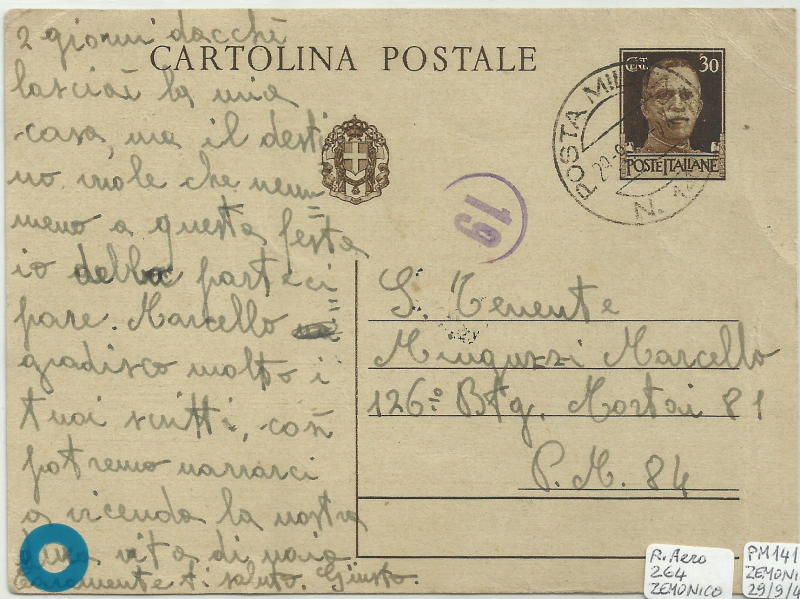 2 giorni dacchè
lasciai la mia
casa, ma il desti
no vuole che nem
meno a questa festa
io debba parteci
pare. Marcello
gradisco molto i
tuoi scritti, così
potremo narrarci
a vicenda la nostra
vita di naia
Caramente ti saluto. Giusto.
CARTOLINA POSTALE
CENT. 30
POSTE ITALIANE
POSTA MIL
29-9
N.
19
S. Tenente
Minguzzi Marcello
126° Btg. Mortai 81
P.M. 84
R. Aereo
264
ZEMONICO
PM 141
ZEMONI
29/9/4